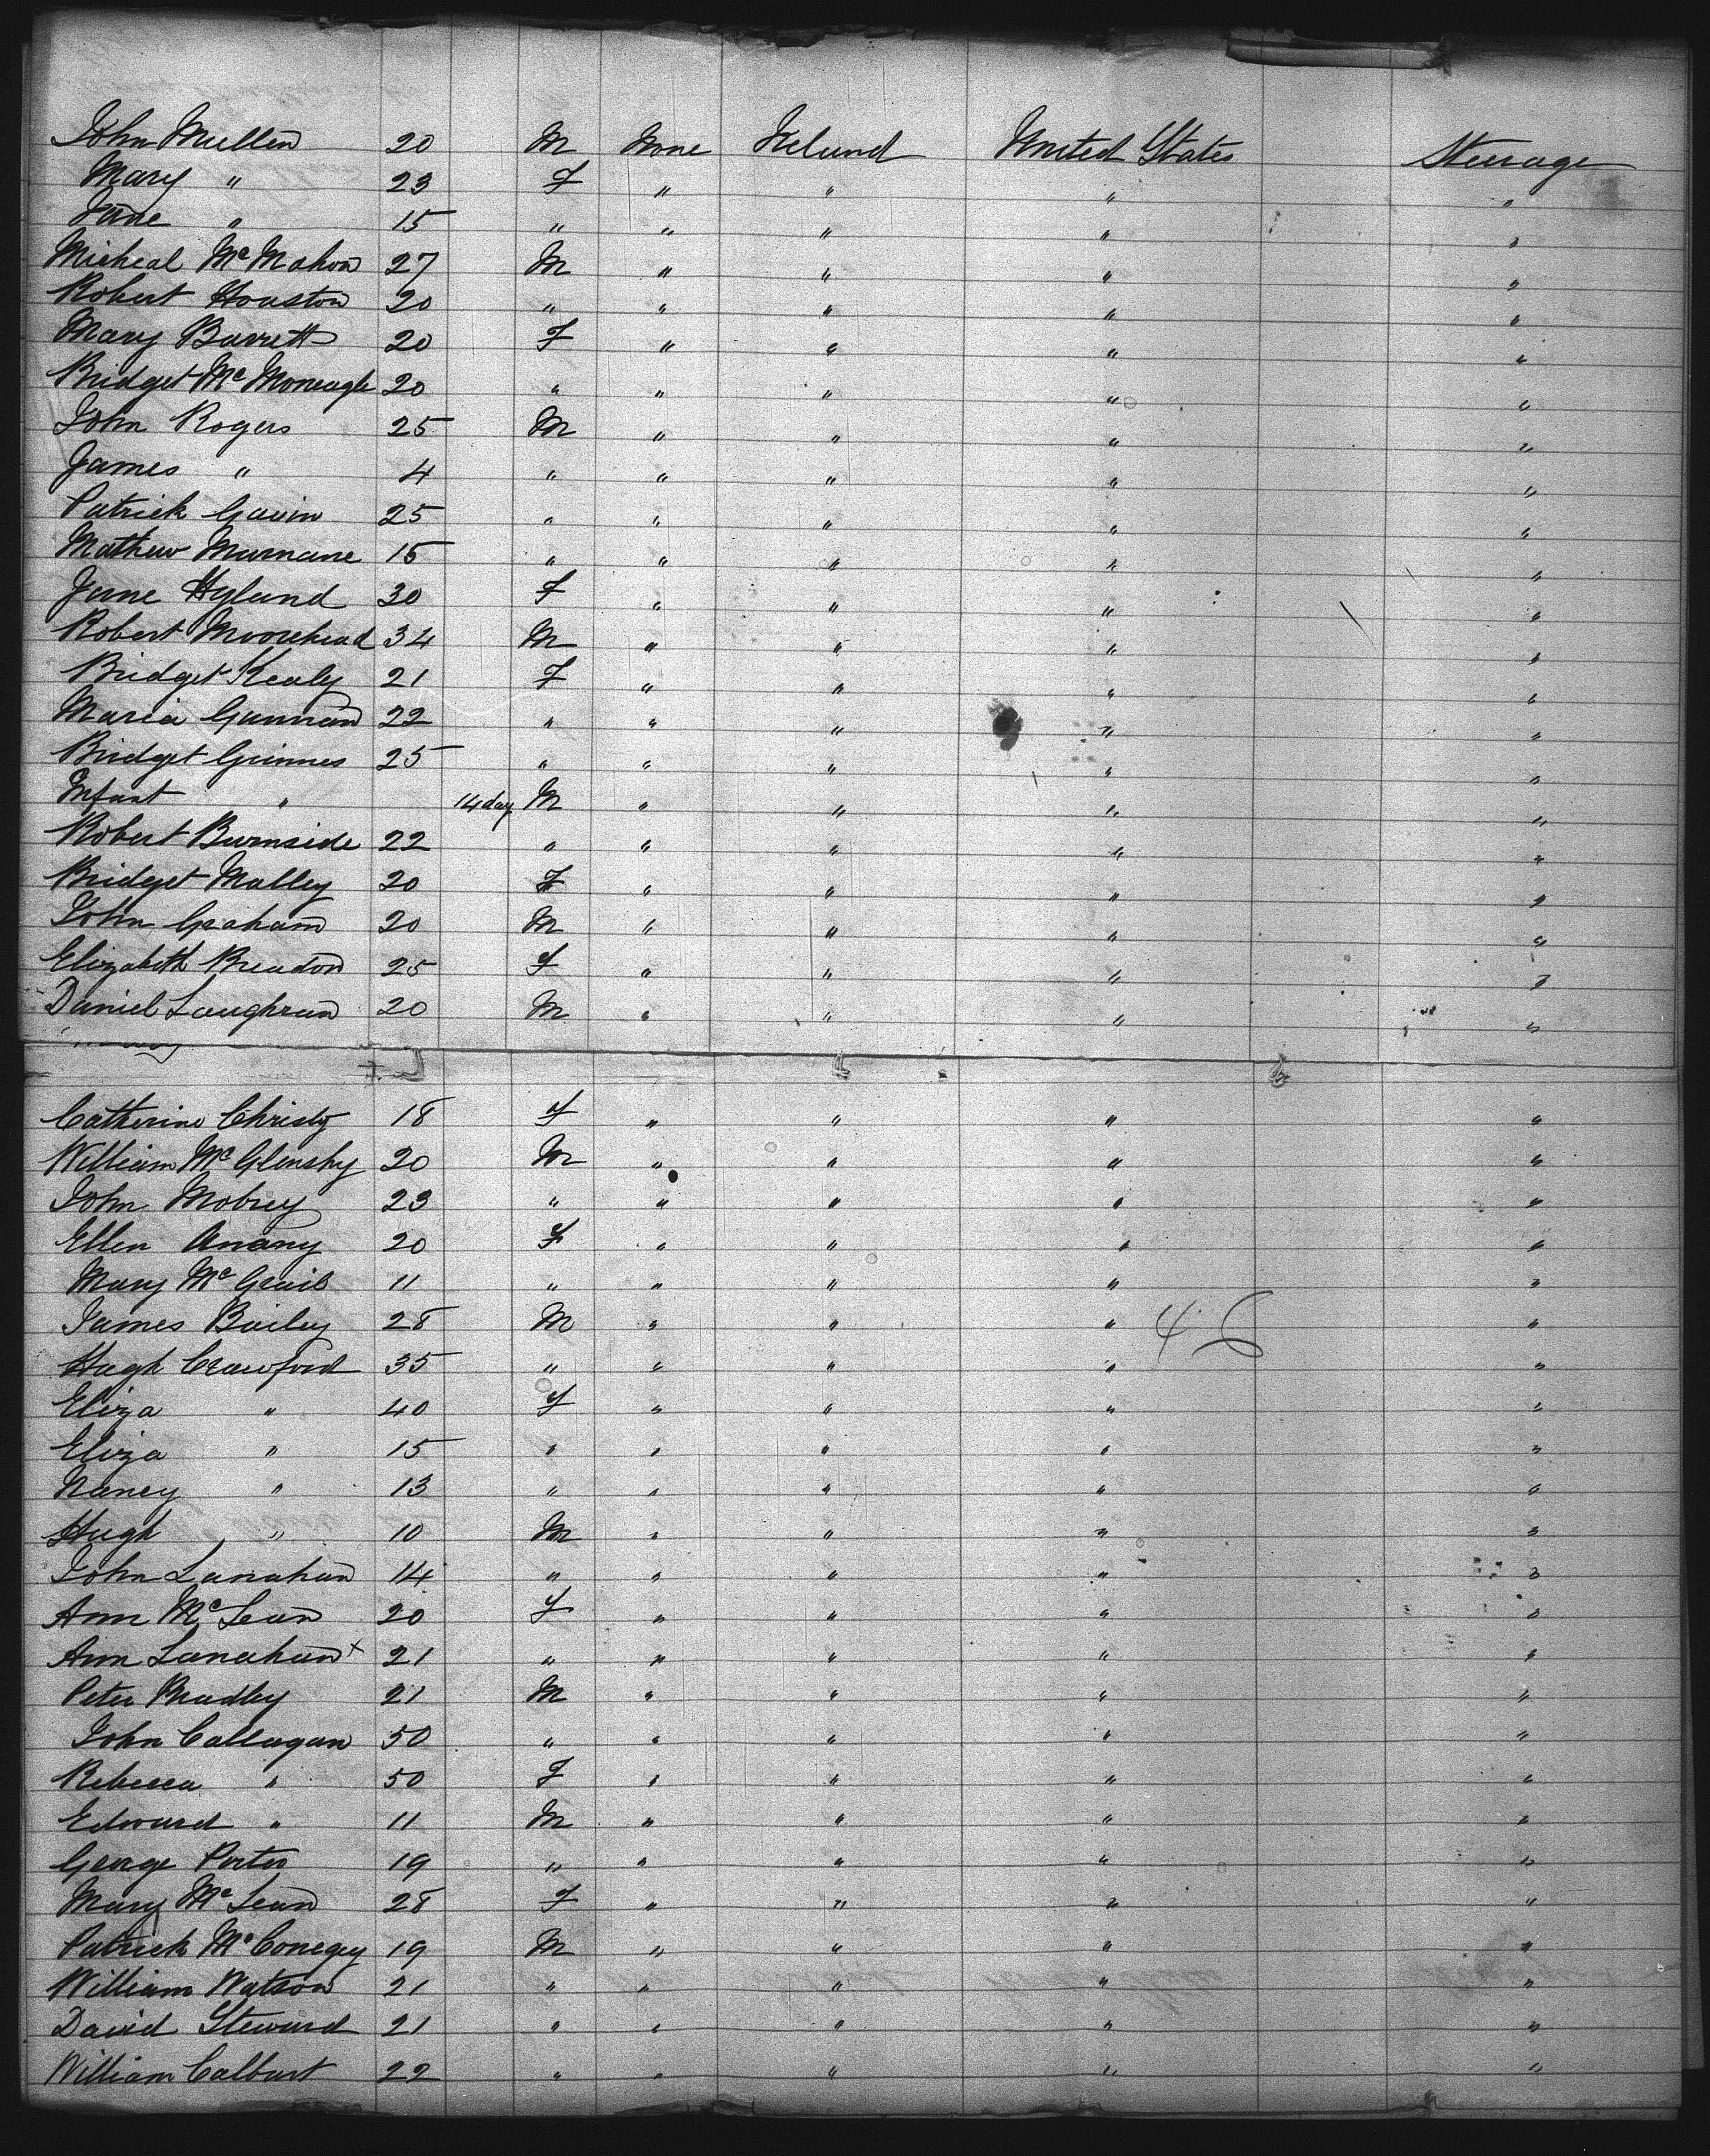 John Mullen 20 M None Ireland United States Steerage
Mary " 23 F " " " "
Jane " 15 " " " " "
Micheal McMahon 27 M " " " "
Robert Houston 20 " " " " "
Mary Barrett 20 F " " " "
Bridget McMoneagle 20 " " " " "
John Rogers 25 M " " " "
James " 4 " " " " "
Patrick Gavin 25 " " " " "
Mathew Murnane 15 " " " " "
Jane Hyland 30 F " " " "
Robert Moorehead 34 M " " " "
Bridget Kealy 21 F " " " "
Maria Gannan 22 " " " " "
Bridget Grinnes 25 " " " " "
Infant " 14 day M " " " "
Robert Burnside 22 " " " " "
Bridget Malley 20 F " " " "
John Graham 20 M " " " "
Elizabeth Breadon 25 F " " " "
Daniel Laughran 20 M " " " "
Catherine Christy 18 F " " " "
William McGlenshy 20 M " " " "
John Mobrey 23 " " " " "
Ellen Anany 20 F " " " "
Mary McGrail 11 " " " " "
James Bailey 28 M " " " "
46
Hugh Crawford 35 " " " " "
Eliza " 40 F " " " "
Eliza " 15 " " " " "
Nancy " 13 " " " " "
Hugh " 10 M " " " "
John Lanahan 14 " " " " "
Ann McLean 20 F " " " "
Ann Lanahan x 21 " " " " "
Peter Bradley 21 M " " " "
John Callagan 50 " " " " "
Rebecca " 50 F " " " "
Edward " 11 M " " " "
George Porter 19 " " " " "
Mary McLean 28 F " " " "
Patrick McConegey 19 M " " " "
William Watson 21 " " " " "
David Steward 21 " " " " "
William Calburt 22 " " " " "